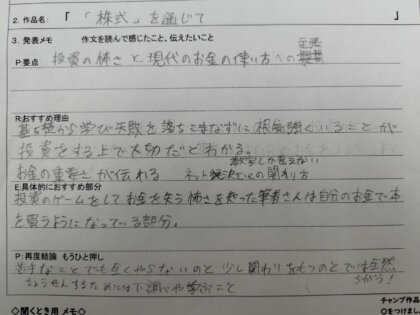 2. 作品名: 「 「株式」を通じて 」
3. 発表メモ 作文を読んで感じたこと、伝えたいこと
P:要点 投資の怖さと現代のお金の使い方への
主張
R:おすすめ理由
基礎から学び失敗を落ちこまなずに根気強くいることが
投資をする上で大切だとわかる。
数字しか見えない
お金の重要さが伝わる ネット決済との関わり方
E:具体的におすすめ部分
投資のゲームをしてお金を失う怖さを知った筆者さんは自分のお金で本
を買うようになっている部分。
P:再度結論 もうひと押し
苦手なことでも全くやらないのと少し関わりをもつのとでは全然
ちがう!
ちょうせんするためには下調べや学ぶこと
◇聞くとき用 メモ◇
チャンプ作品
○をつけまし